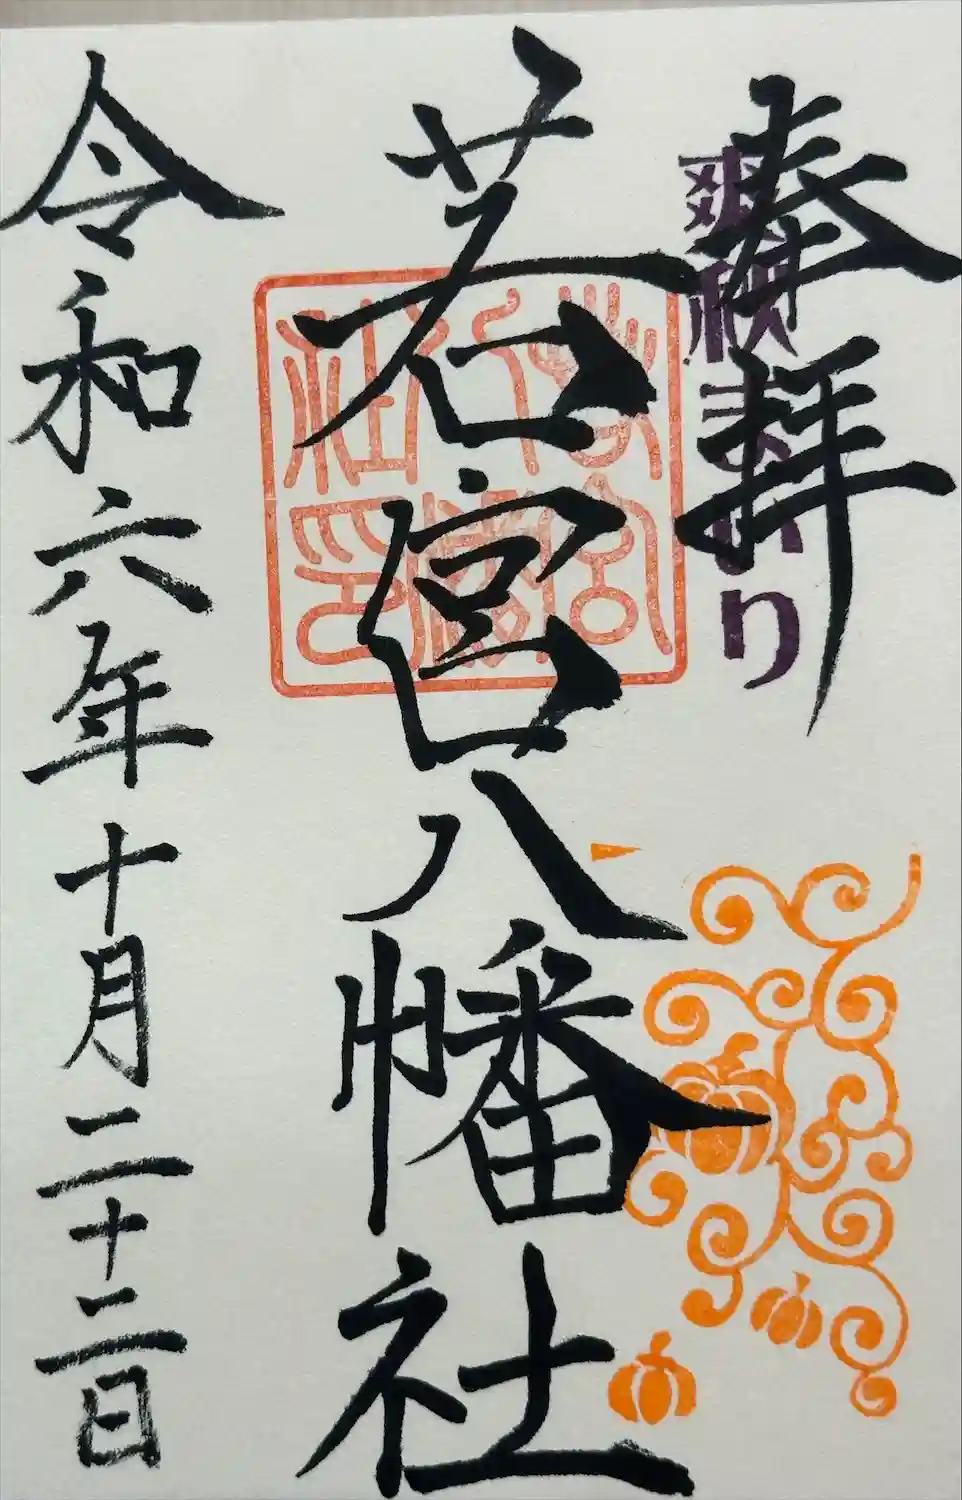 奉拝
爽秋まいり
若宮八幡社
若宮八幡社印
令和六年十月二十二日